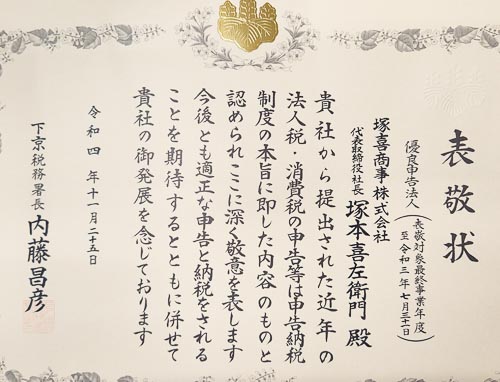 表敬状
優良申告法人
(表敬対象最終事業年度
至令和三年七月三十一日)
塚喜商事株式会社
代表取締役社長 塚本喜左衛門 殿
貴社から提出された近年の
法人税・消費税の申告等は申告納税
制度の本旨に即した内容のものと
認められここに深く敬意を表します
今後とも適正な申告と納税をされる
ことを期待するとともに併せて
貴社の御発展を念じております
令和四年十一月二十五日
下京税務署長 内藤昌彦